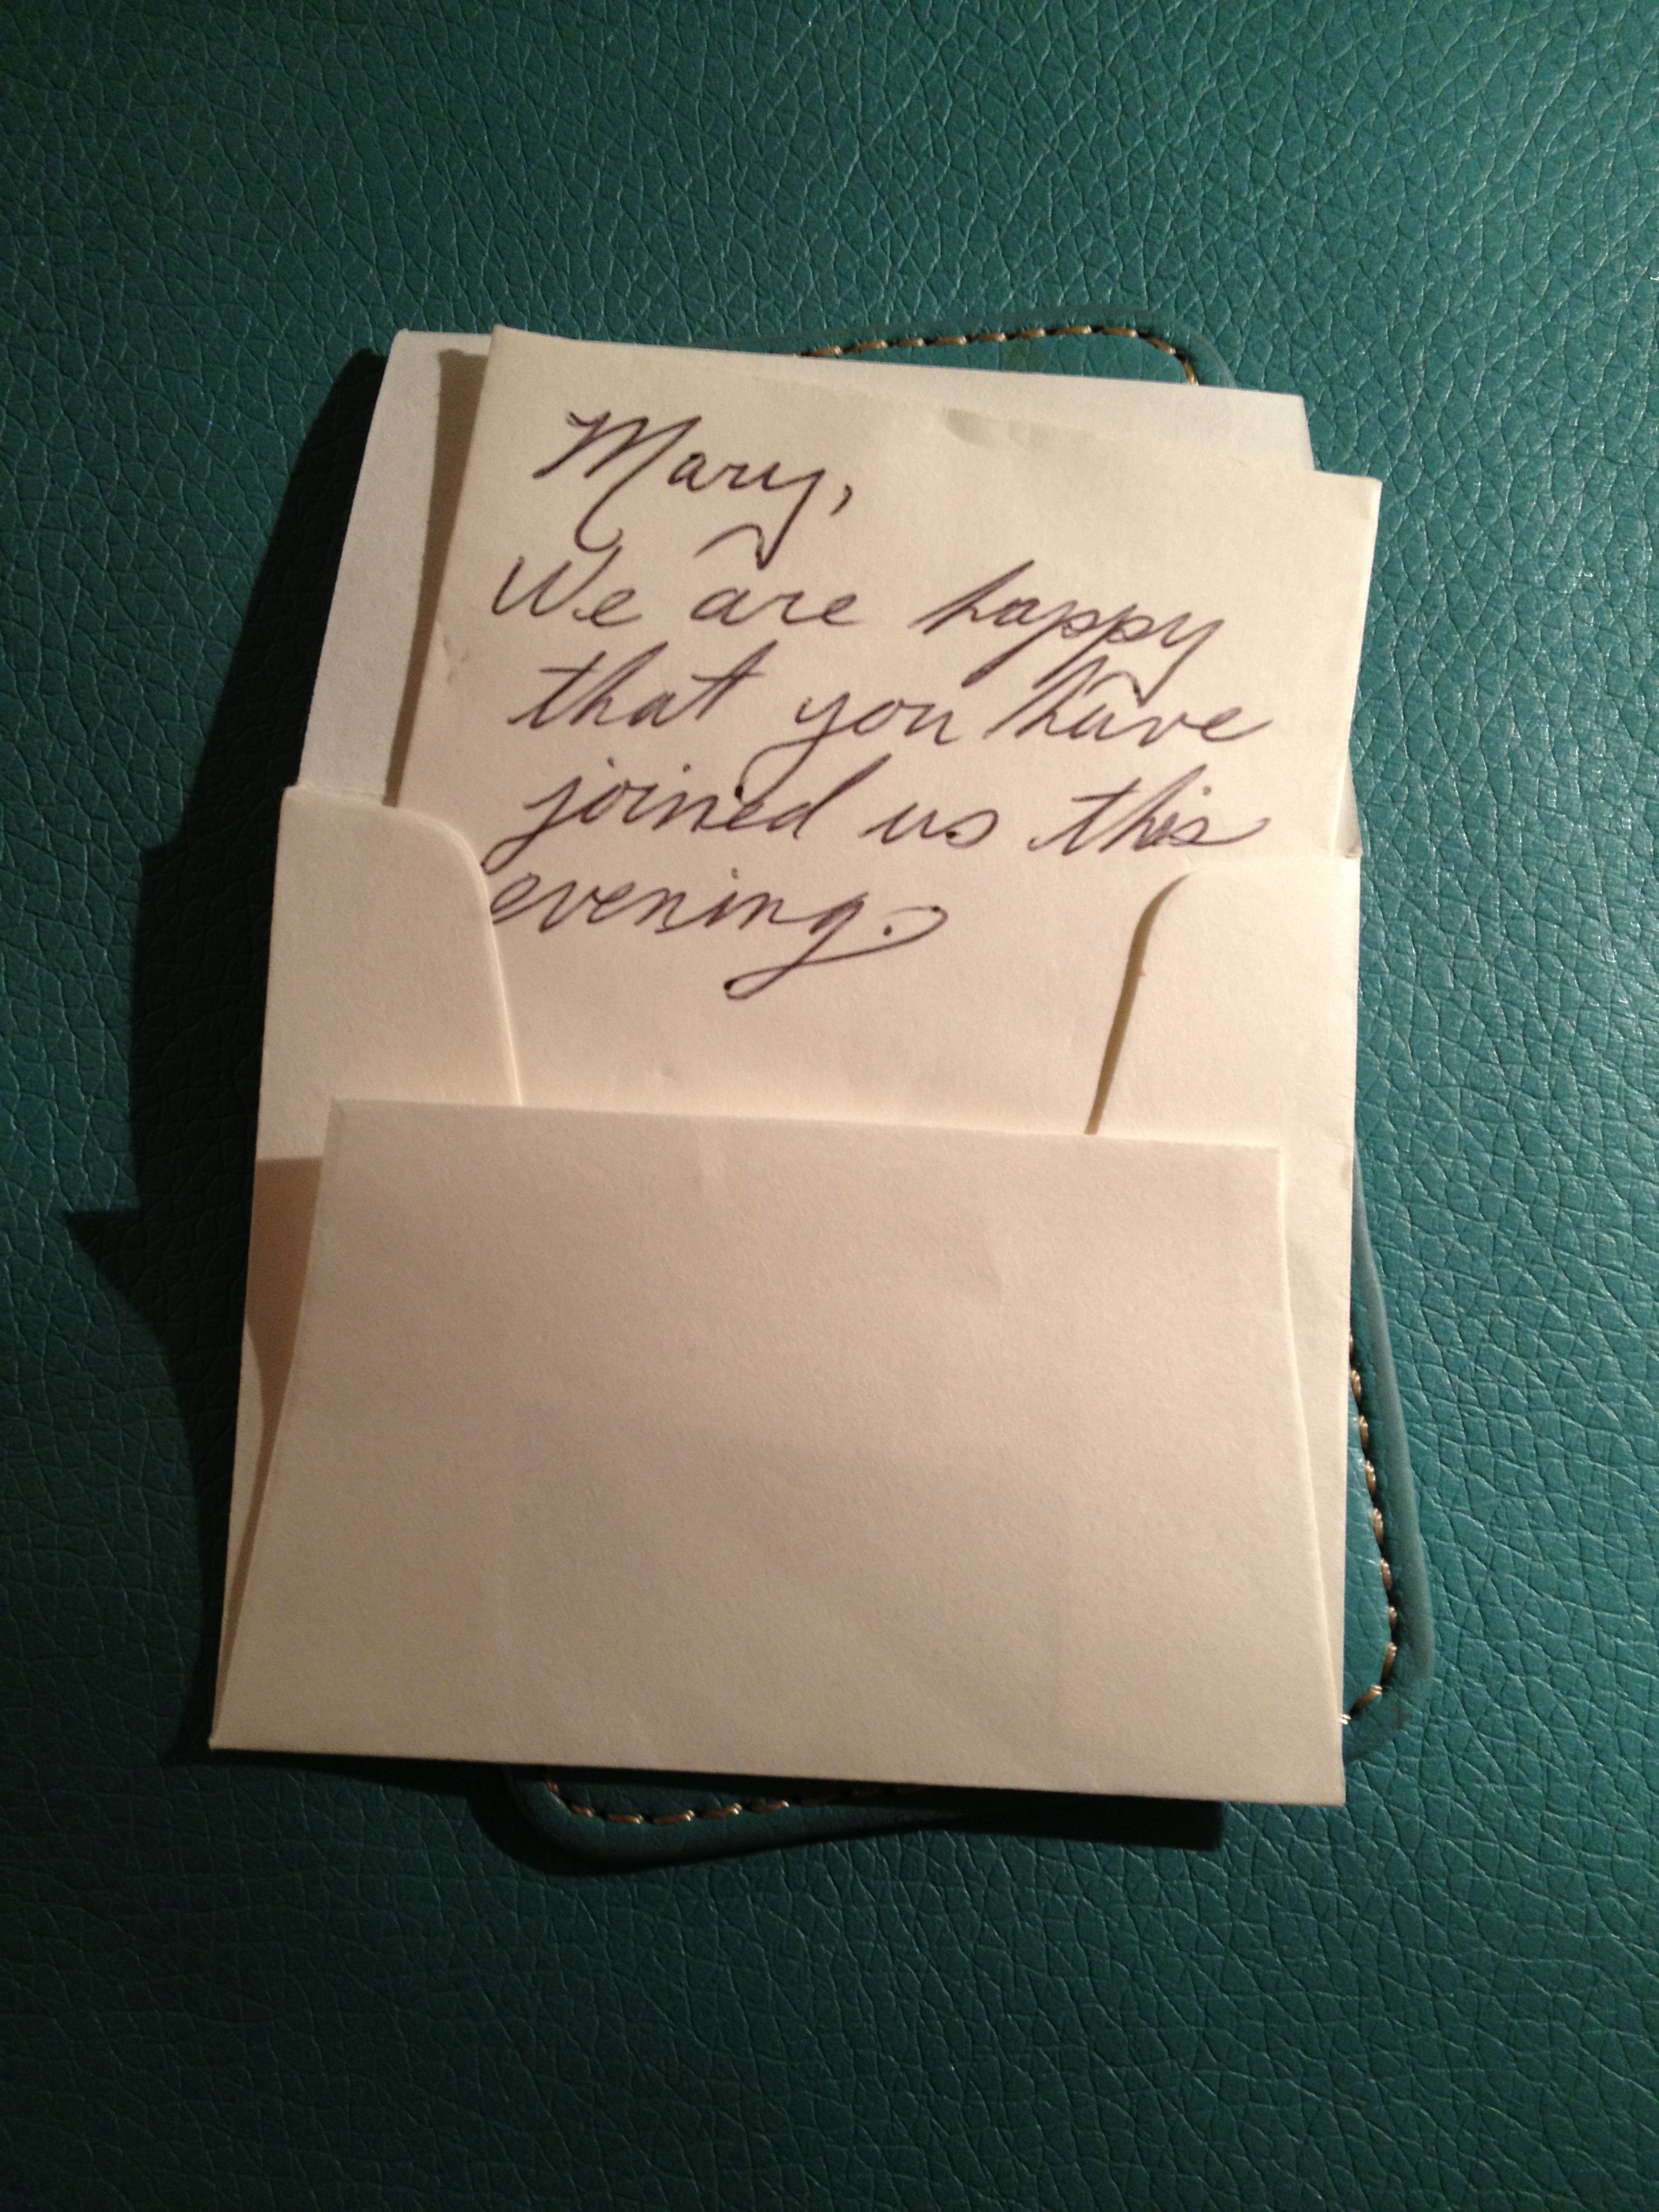 Mary,
We are happy
that you have
joined us this
evening.